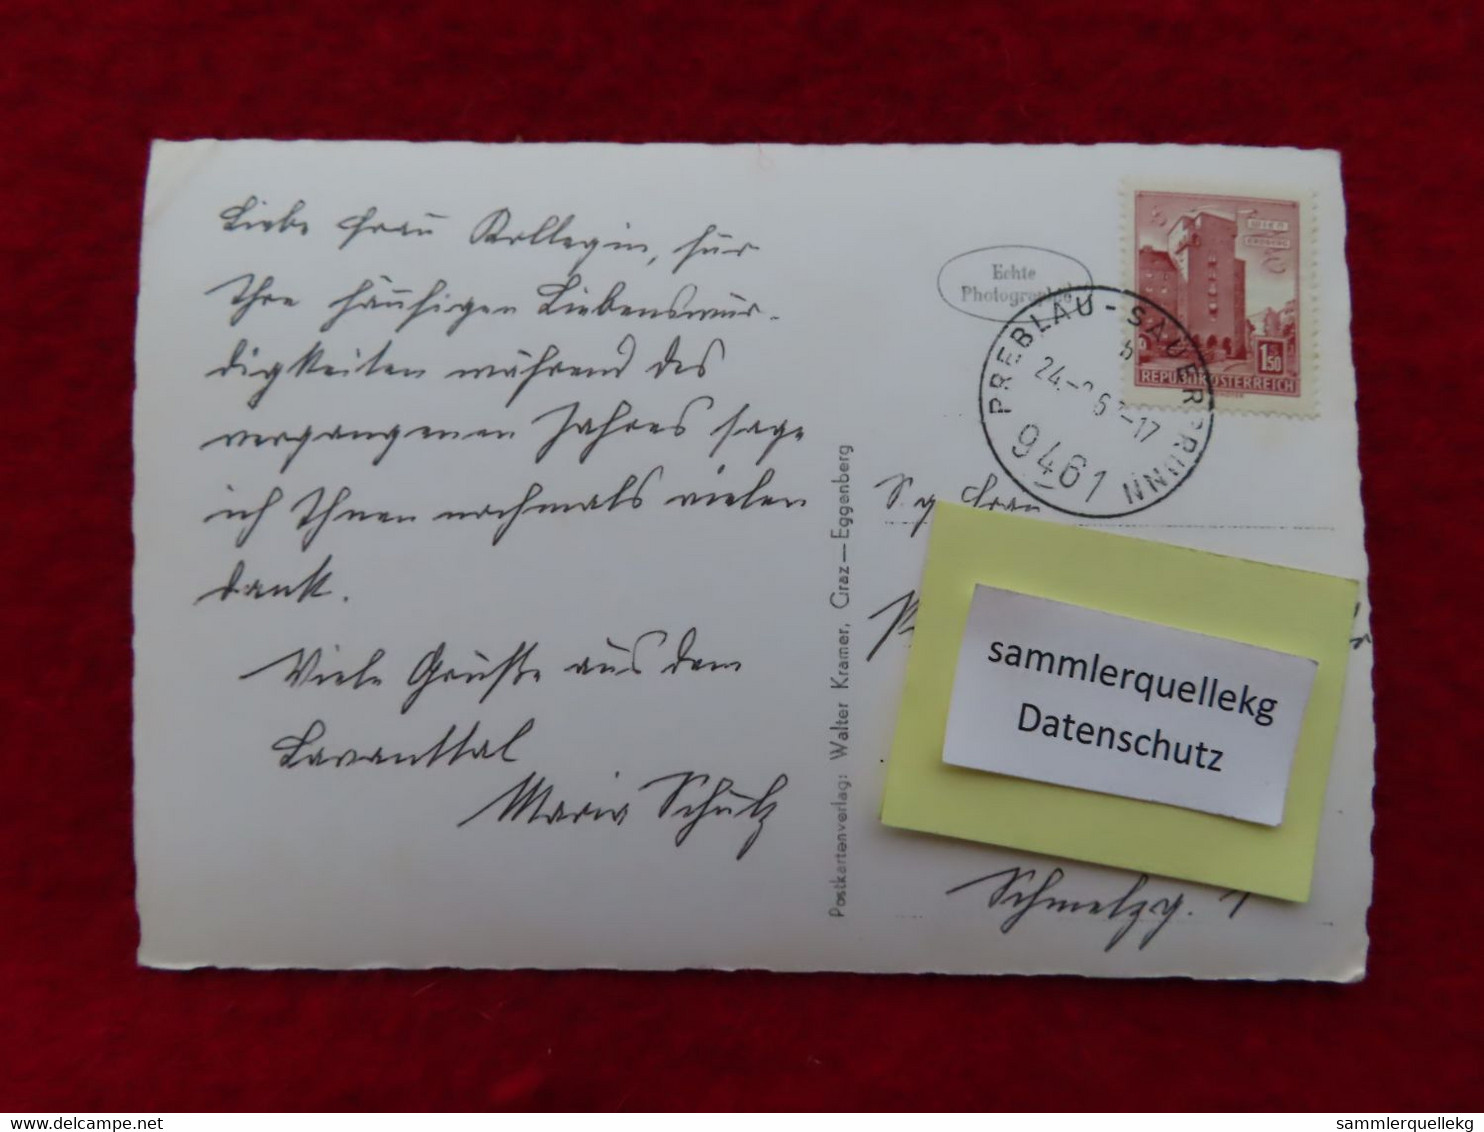 Liebe Frau Kollegin, für
Ihre häufigen Liebenswür-
digkeiten während des
vergangenen Jahres sage
ich Ihnen nochmals vielen
Dank.
Viele Grüße aus dem
Lavanttal
Maria Schulz
Postkartenverlag: Walter Kramer, Graz—Eggenberg
Echte
Photographie
WIEN
REPUBLIK ÖSTERREICH
1.50
PREBLAU-SAUERBRUNN
-17
9461
S. g. Frau
sammlerquellekg
Datenschutz
Schmelzg. 1
delcampe.net
sammlerquellekg